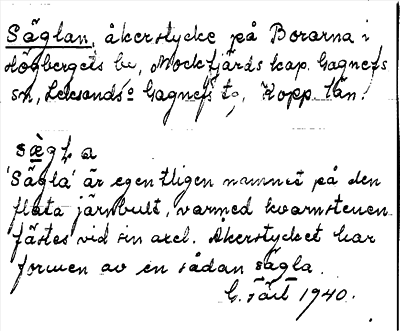 Säglan, åkerstycke på Borarna i
Högbergets by, Mockfjärds kap. Gagnefs
sn, Leksands o Gagnefs t., Kopp. län.
sægla
'Sägla' är egentligen namnet på den
flata järnbult, varmed kvarnstenen
fästes vid sin axel. Åkerstycket har
formen av en sådan sägla.
G. 1940.